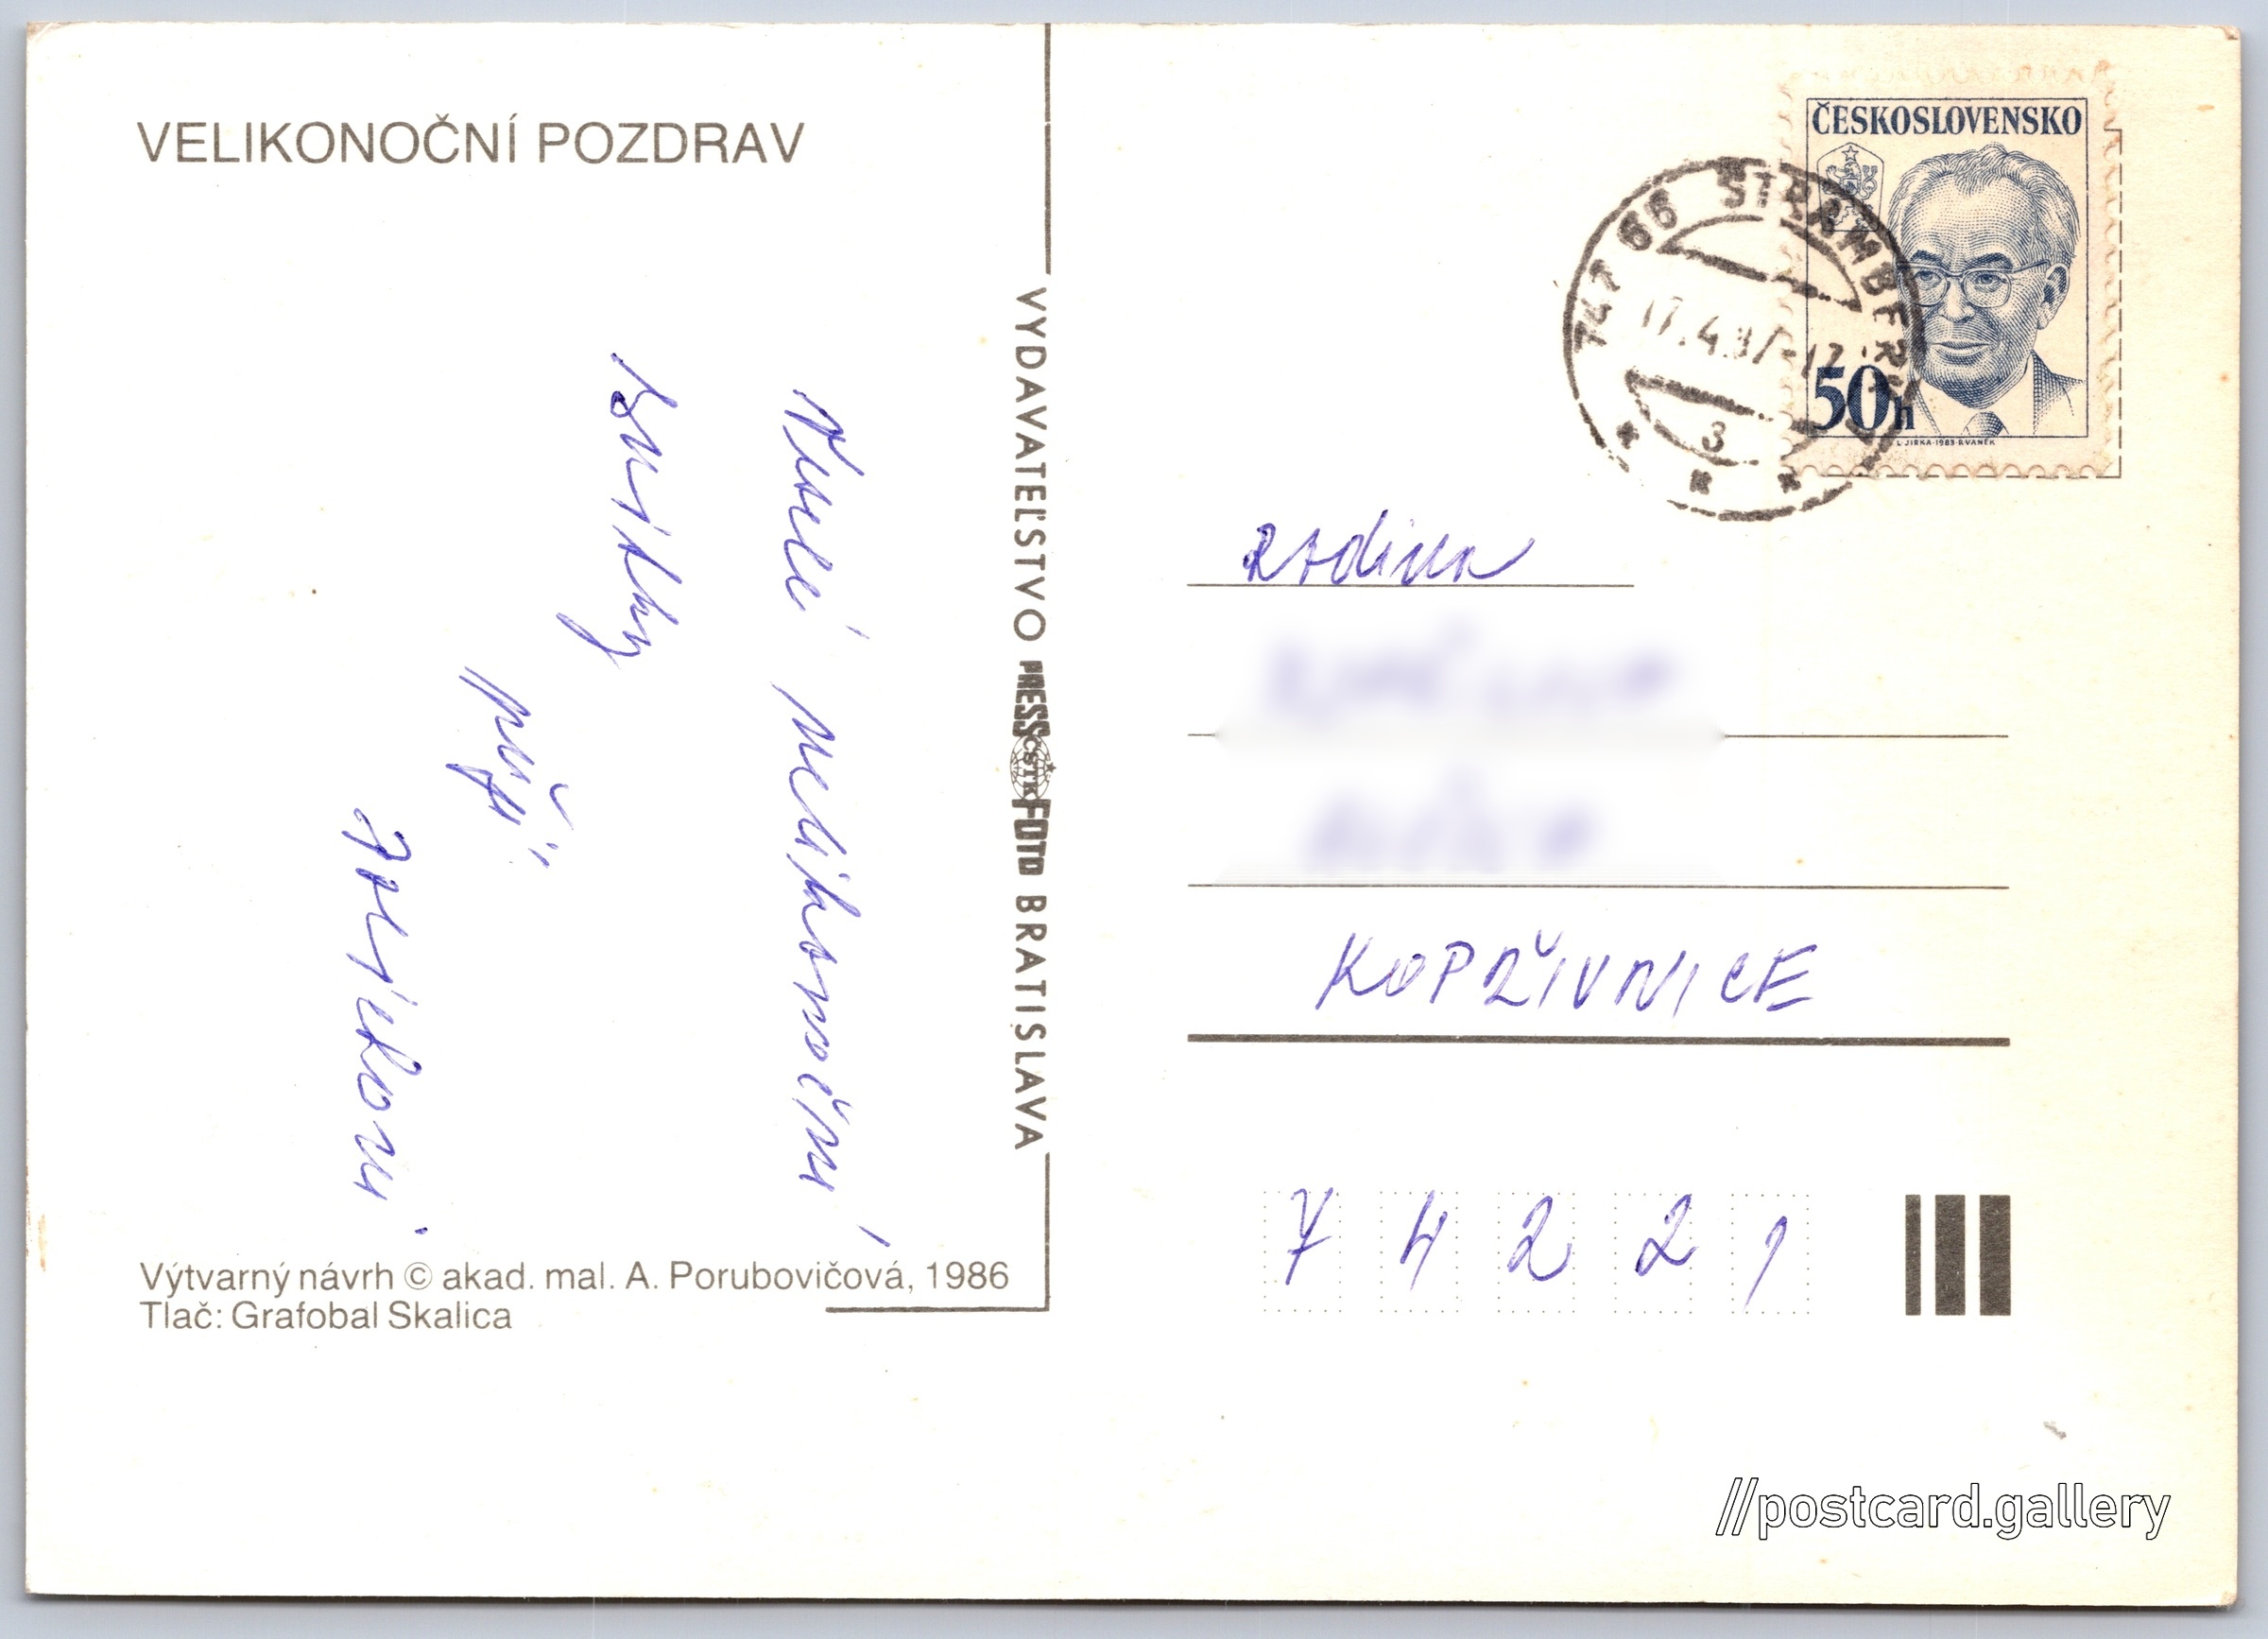 VELIKONOČNÍ POZDRAV
Veselé velikonoční
svátky
přejí
VYDAVATEĽSTVO PRESSFOTO BRATISLAVA
ČSTK
Výtvarný návrh © akad. mal. A. Porubovičová, 1986
Tlač: Grafobal Skalica
ČESKOSLOVENSKO
50h
L·JIRKA·1983·R·VANĚK
742 66 ŠTRAMBERK
17.4.87-12
3
RODINA
KOPŘIVNICE
74221
//postcard.gallery